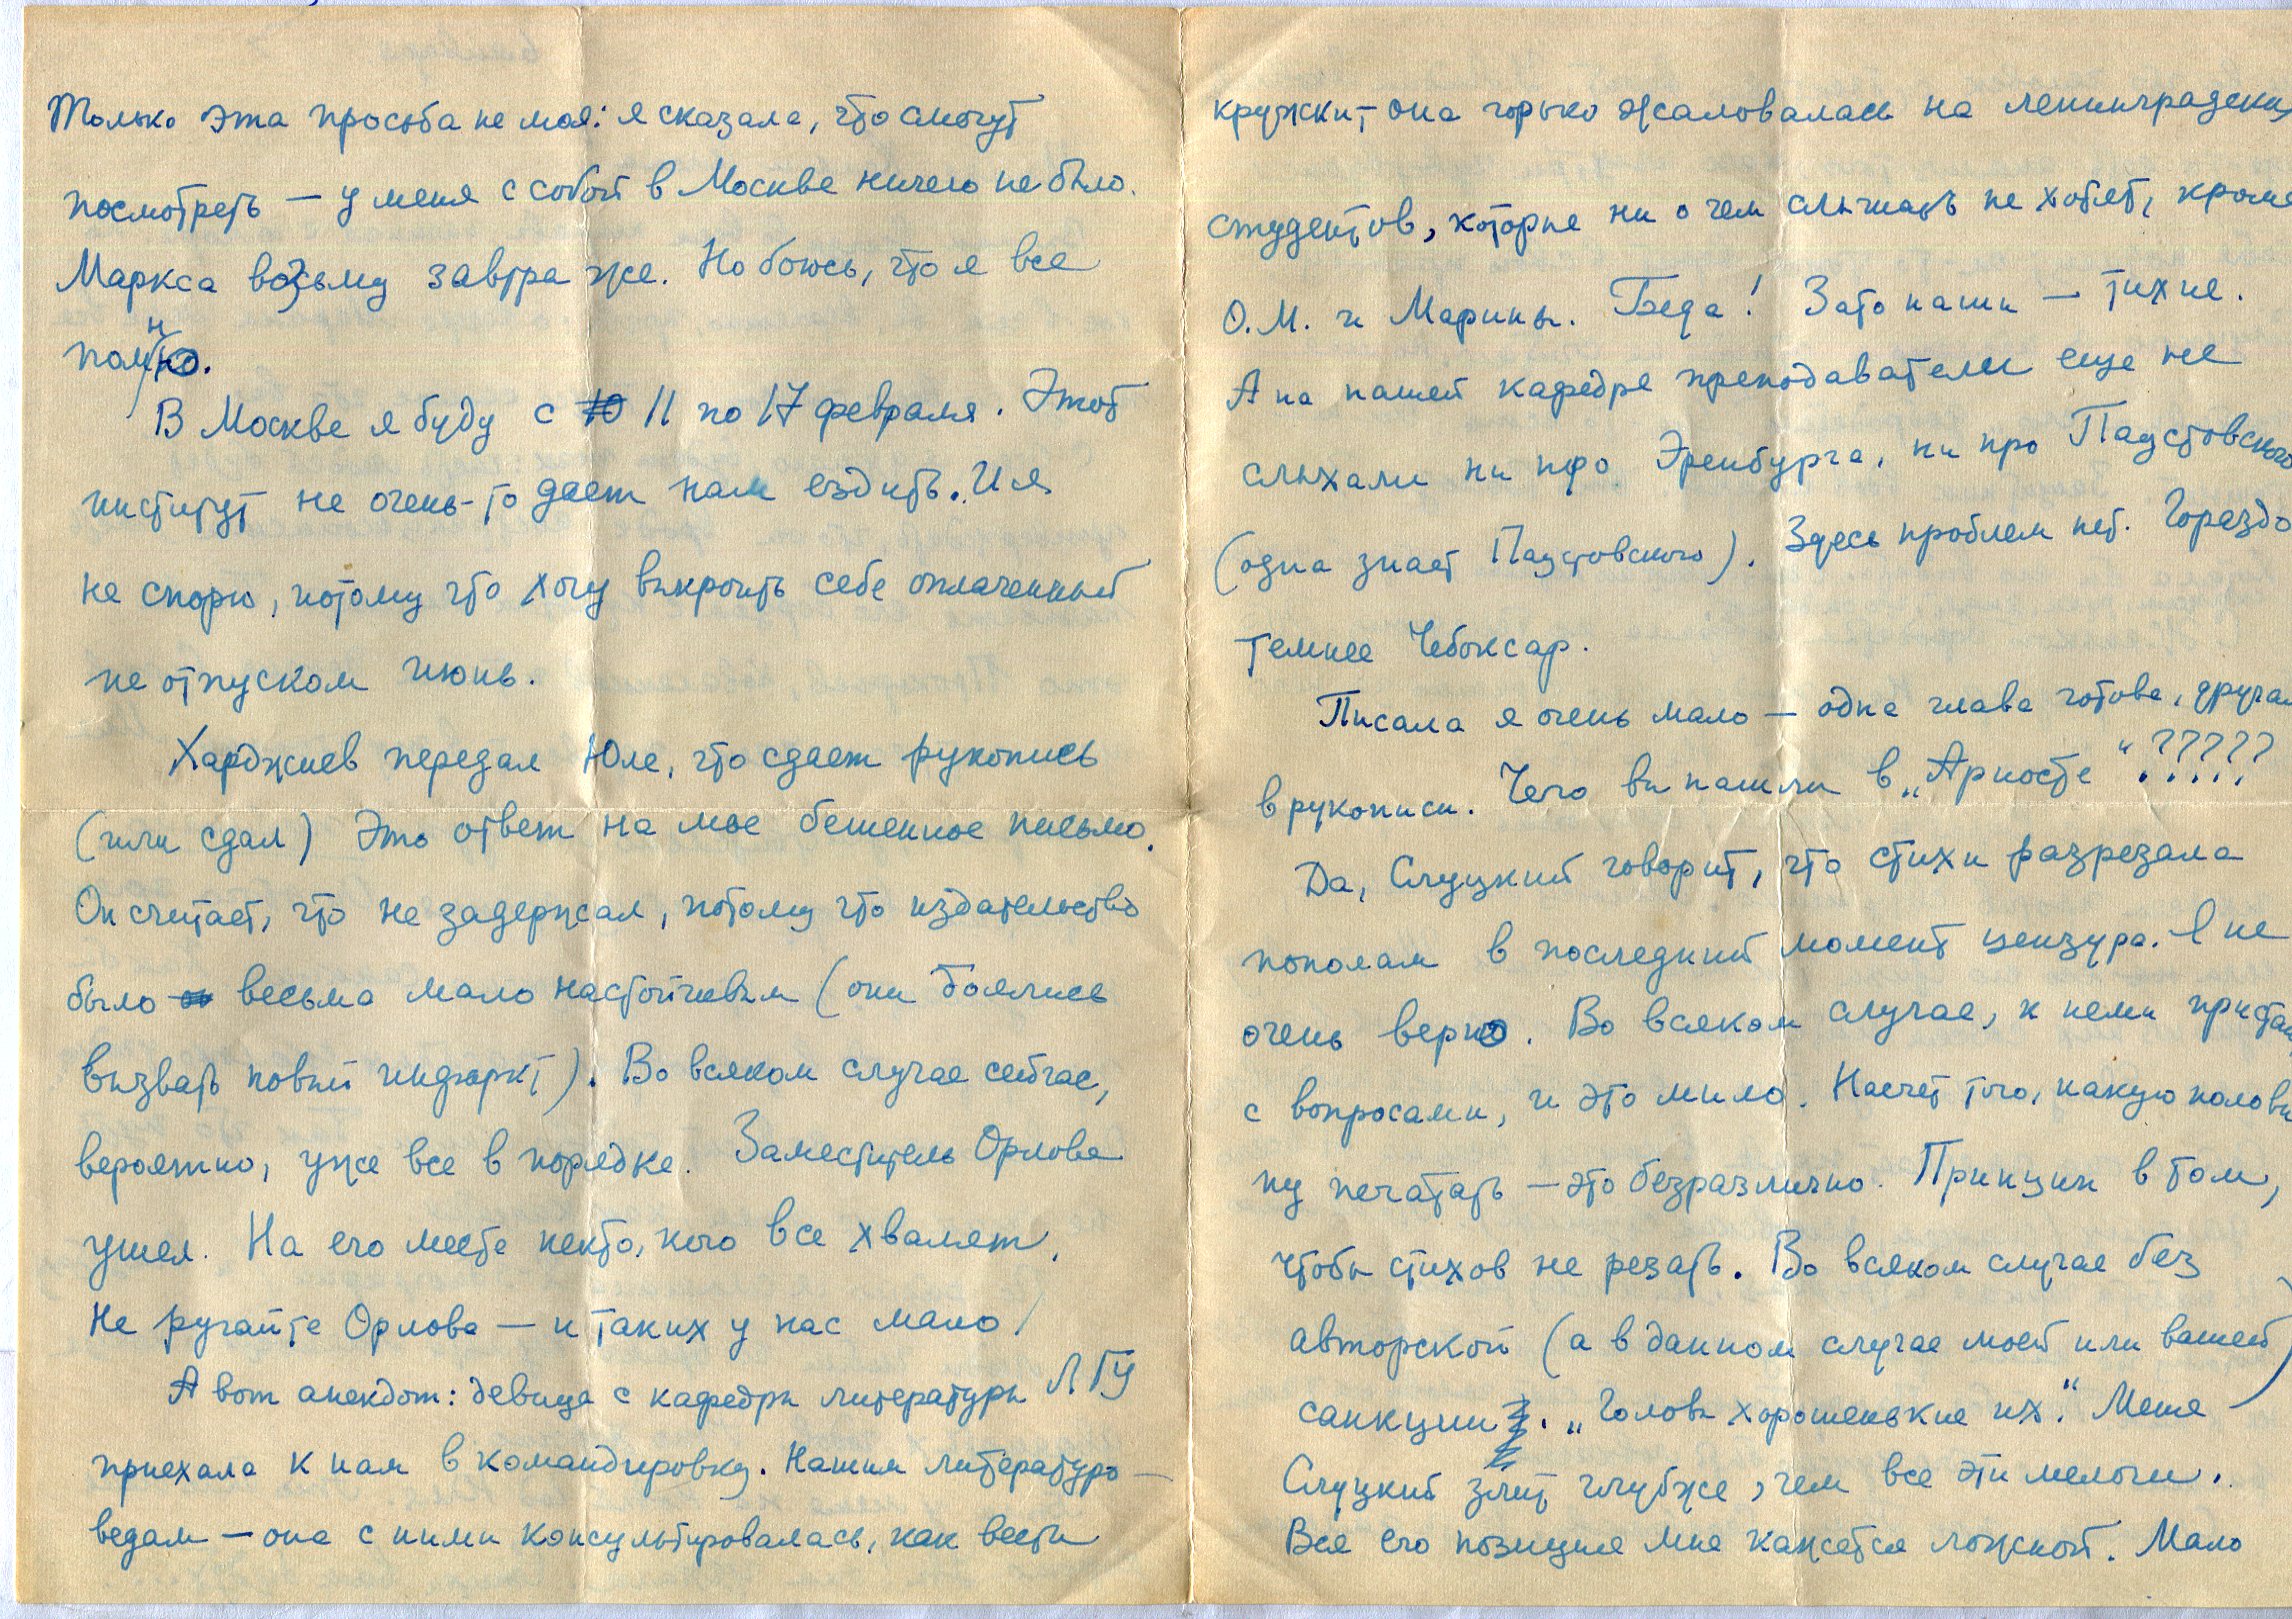 Только эта просьба не моя: я сказала, что смогут
посмотреть — у меня с собой в Москве ничего не было.
Маркса возьму завтра же. Но боюсь, что я все
помню.
В Москве я буду с 10 11 по 17 февраля. Этот
институт не очень-то дает нам ездить. И я
не спорю, потому что хочу выкроить себе оплаченный
не отпуском июнь.
Харджиев передал Юле, что сдает рукопись
(или сдал) Это ответ на мое бешенное письмо.
Он считает, что не задержал, потому что издательство
было весьма мало настойчивым (они боялись
вызвать новый инфаркт). Во всяком случае сейчас,
вероятно, уже все в порядке. Заместитель Орлова
ушел. На его месте некто, кого все хвалят.
Не ругайте Орлова — и таких у нас мало!
А вот анекдот: девица с кафедры литературы ЛГУ
приехала к нам в командировку. Нашим литературо-
ведам — она с ними консультировалась, как вести
кружки, она горько жаловалась на ленинградских
студентов, которые ни о чем слышать не хотят, кроме
О.М. и Марины. Беда! Зато наши — тихие.
А на нашей кафедре преподаватели еще не
слыхали ни про Эренбурга, ни про Паустовского
(одна знает Паустовского). Здесь проблем нет. Гораздо
темнее Чебоксар.
Писала я очень мало — одна глава готова, другая
в рукописи. Чего вы нашли в „Ариосте“?????
Да, Слуцкий говорит, что стихи разрезала
пополам в последний момент цензура. Я не
очень верю. Во всяком случае, к ним
с вопросами, и это мило. Насчет того, какую полови
ну печатать — это безразлично. Принцип в том,
чтобы стихов не резать. Во всяком случае без
авторской (а в данном случае моей или вашей)
санкции. „Головы хорошенькие их“. Меня
Слуцкий злит глубже, чем все эти мелочи.
Вся его позиция мне кажется ложной. Мало